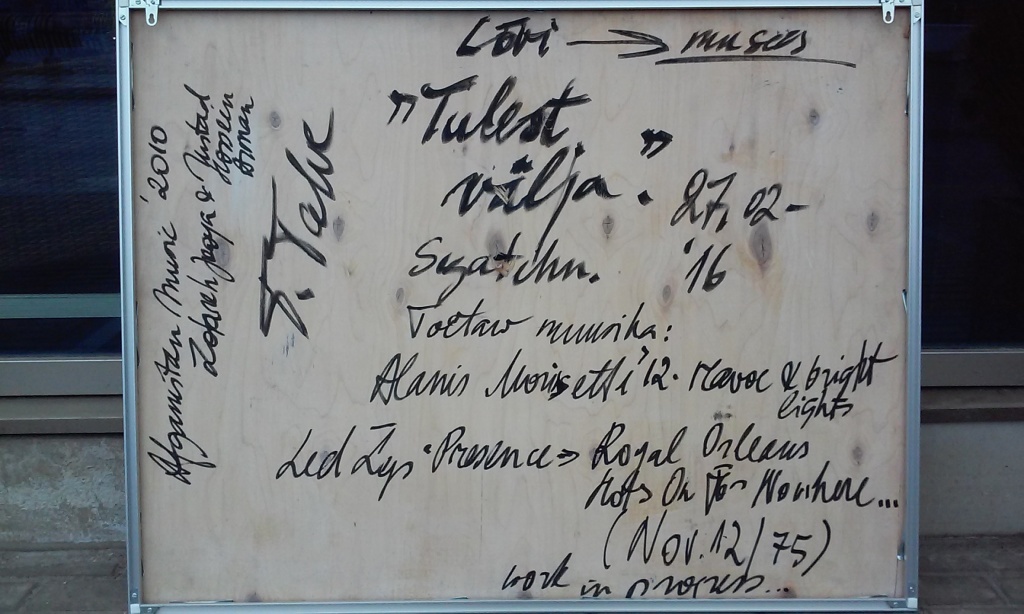 Lõvi → muses
"Tulest
välja."
27.02-
'16
Sygatchn.
Toetaw muusika:
Alanis Morisetti '12. Havoc & bright
lights
Led Zep. Presence => Royal Orleans
Hots On For Nowhere...
(Nov. 12/75)
work in progress...
Afganistan Music '2010
Zohreh Jooya & Ustad
Hossein
Arman